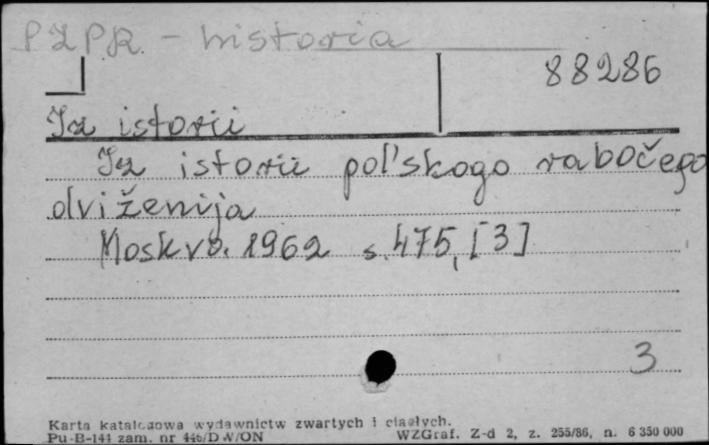 PZPR - historia
88286
Iz istorii
Iz istorii pol'skogo rabočego
dviženija
Moskva. 1962 s. 475, [3]
3
Karta katalogowa wydawnictw zwartych i ciągłych.
Pu-B-141 zam. nr 446/DW/ON WZGraf. Z-d 2, z. 255/86, n. 6 350 000